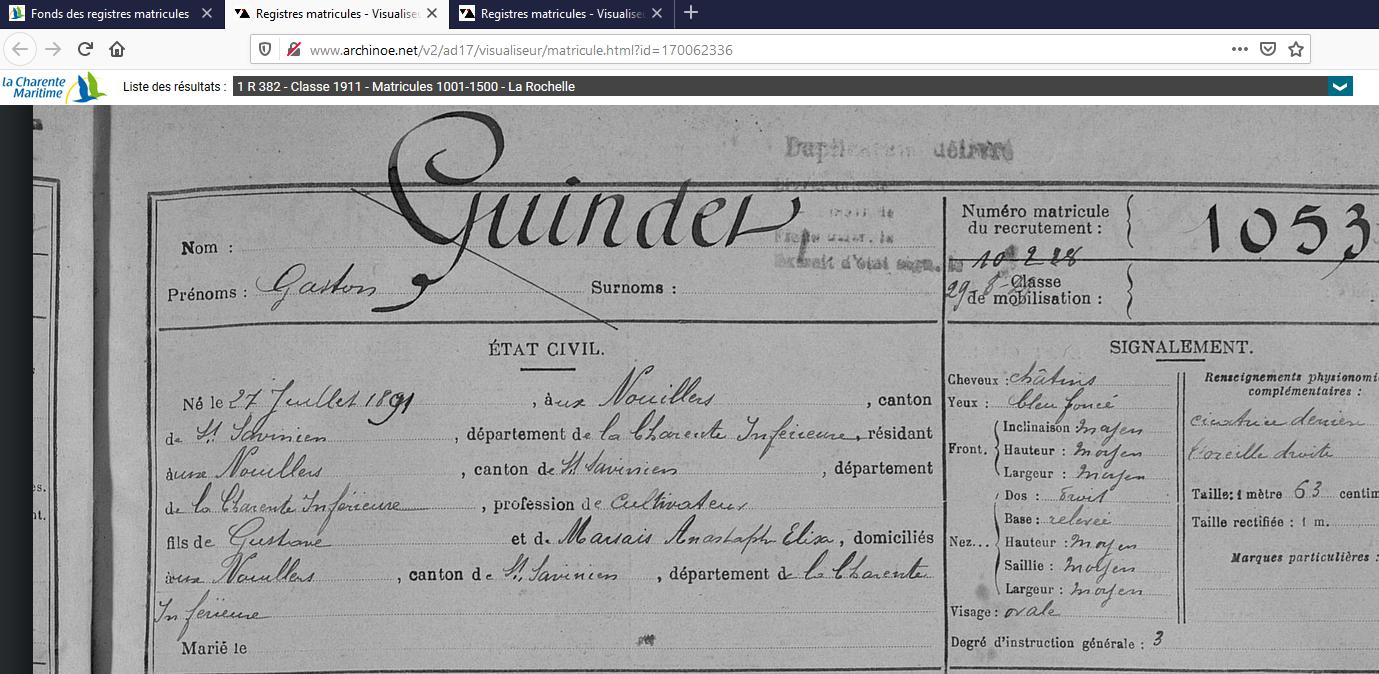 Fonds des registres matricules
Registres matricules - Visualise
Registres matricules - Visualise
www.archinoe.net/v2/ad17/visualiseur/matricule.html?id=170062336
la Charente Maritime
Liste des résultats : 1 R 382 - Classe 1911 - Matricules 1001-1500 - La Rochelle
Duplicatum délivré
Nom : Guinder
Numéro matricule du recrutement : 1053
10 2 28
Prénoms : Gaston Surnoms :
Classe de mobilisation :
ÉTAT CIVIL.
Né le 27 Juillet 1891, à ux Nouillers, canton
de St Savinien, département de la Charente Inférieure, résidant
à aux Nouillers, canton de St Savinien, département
de la Charente Inférieure, profession de Cultivateur
fils de Gustave et de Marsais Anastaph Elisa, domiciliés
à aux Nouillers, canton de St Savinien, département de la Charente
Inférieure
Marié le
SIGNALEMENT.
Cheveux : châtins
Yeux : bleu foncé
Front. Inclinaison moyen
Hauteur : moyen
Largeur : moyen
Nez... Dos : droit
Base : relevée
Hauteur : moyen
Saillie : moyen
Largeur : moyen
Visage : ovale
Degré d'instruction générale : 3
Renseignements physionomi
complémentaires :
cicatrice derrière
l'oreille droite
Taille : 1 mètre 63 centim
Taille rectifiée : 1 m.
Marques particulières :